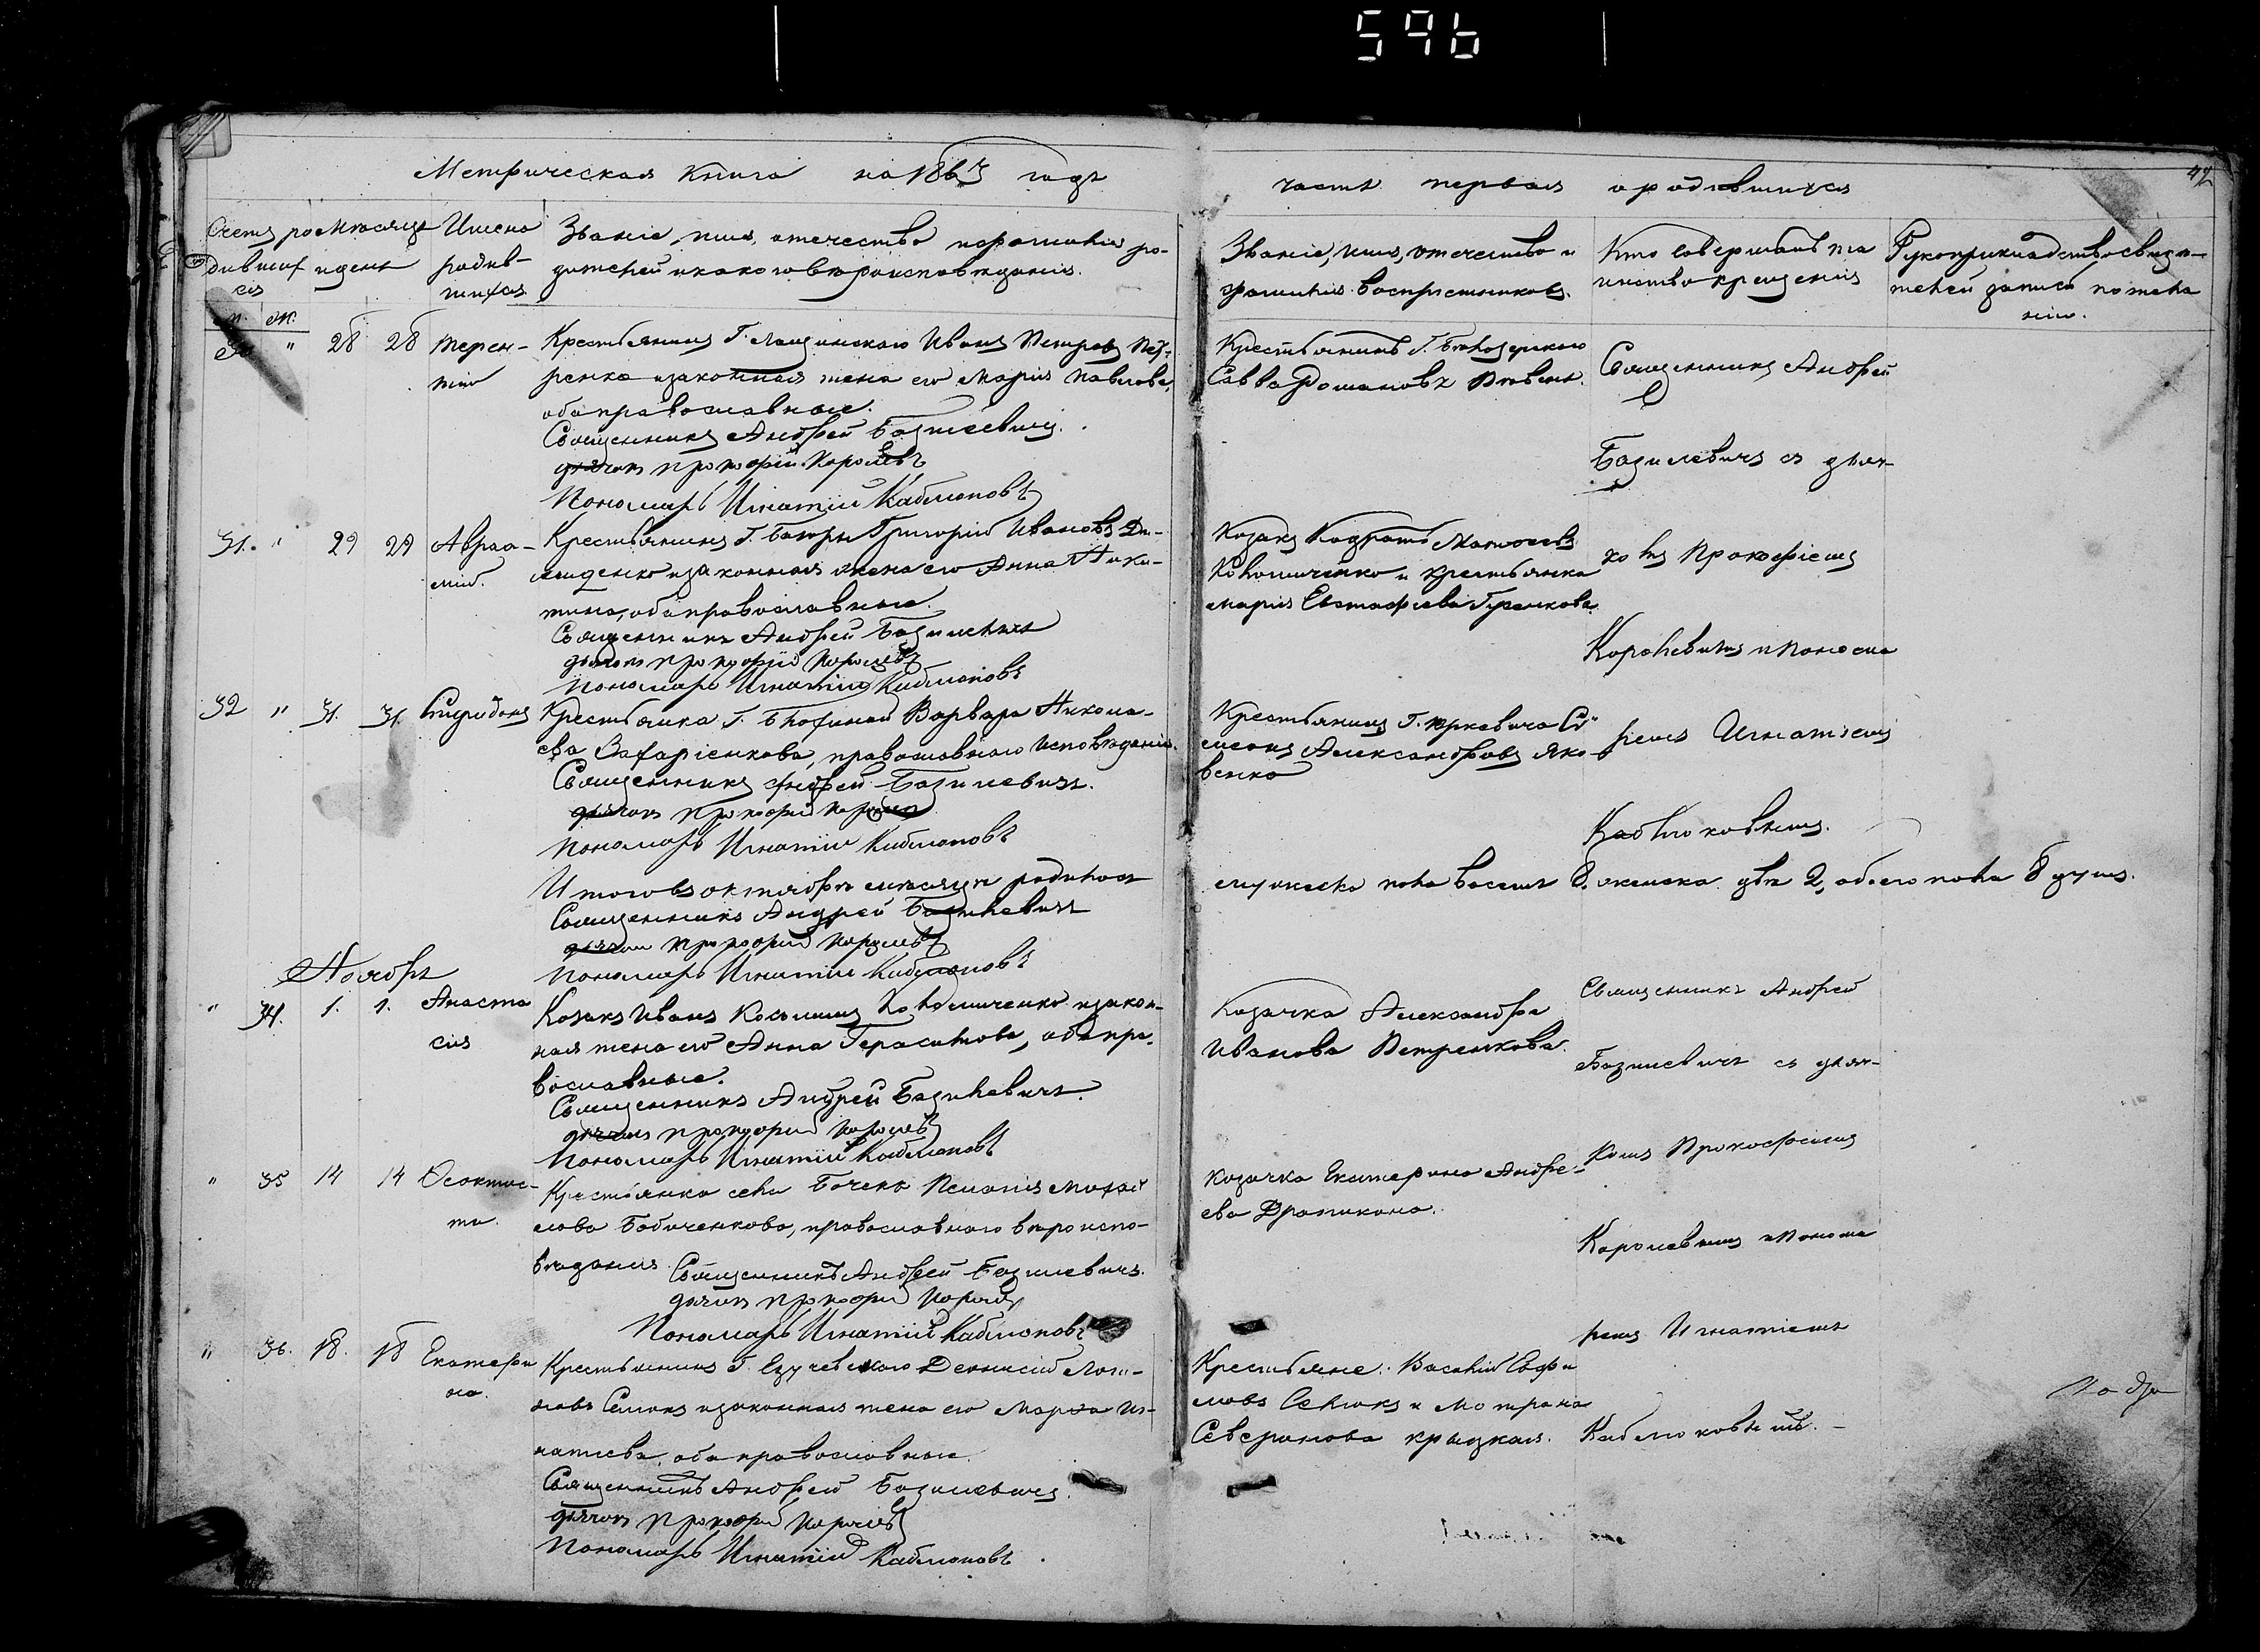 596
42
Метрическая книга на 1863 годъ
часть первая о родившихся
Счетъ ро Мѣсяцъ Имена
дивших и день родив-
ся шихся
Званіе, имя, отечество и фамилія ро-
дителей и какого вѣроисповѣданія.
Званіе, имя, отечество и
фамилія воспріемниковъ.
Кто совершалъ та
инство крещенія
Рукоприкладство свидѣ-
телей записи по жела
нію.
м. ж.
30 " 28 28 Терен-
тій
Крестьянинъ Г. Иванъ Петровъ Пет-
ренко и законная жена его Марія Павлова,
оба православные.
Священникъ Андрей Базилевичъ.
дьячокъ Прокофій Королевъ
Пономарь Игнатій Каблюковъ
Крестьянинъ Г. Бѣлозерского
Савва Романовъ
Священникъ Андрей
Базилевичъ съ дьяч-
31. " 29 29 Авраа-
мій.
Крестьянинъ Г. Григорій Ивановъ Дѣ-
и законная жена его Анна Ники-
тина, оба православные.
Священникъ Андрей Базилевичъ
дьячокъ Прокофій Королевъ
Пономарь Игнатій Каблюковъ
Козакъ
Коломійченко и крестьянка
Марія Евстафіева
комъ Прокофіемъ
Королевымъ и Понома
32 " 31. 31. Спиридонъ
Крестьянка Г. Варвара Никола-
ева Захаріенкова, православного исповѣданія.
Священникъ Андрей Базилевичъ.
дьячокъ Прокофій Королевъ
Пономарь Игнатій Каблюковъ
Крестьянинъ Г. Юркевича Си
меонъ Александровъ Яко-
венко
ремъ Игнатіемъ
Каблюковымъ.
Итого въ октябрѣ мѣсяцѣ родилось
мужеска пола восемь 8. женска двѣ 2, обоего пола душъ.
Священникъ Андрей Базилевичъ
дьячокъ Прокофій Королевъ
Пономарь Игнатій Каблюковъ
Ноябрь
" 34. 1. 1. Анаста
сія
Козакъ Иванъ Коломійченко и закон-
ная жена его Анна Герасимова, оба пра-
вославные.
Священникъ Андрей Базилевичъ.
дьячокъ Прокофій Королевъ
Пономарь Игнатій Каблюковъ
Козачка Александра
Иванова Петренкова.
Священникъ Андрей
Базилевичъ съ дьяч-
" 35 14 14 Ѳеоктис-
та.
Крестьянка села Бачекъ Пелагія Михай
лова Бабиченкова, православного вѣроиспо-
вѣданія
Священникъ Андрей Базилевичъ.
дьячокъ Прокофій Королевъ
Пономарь Игнатій Каблюковъ
Козачка Екатерина Андре-
ева
комъ Прокофіемъ
Королевымъ и Понома
ремъ Игнатіемъ
" 36. 18. 18 Екатери
на.
Крестьянинъ Г. Діонисій Логи-
новъ и законная жена его Марѳа Иг-
натіева, оба православные.
Священникъ Андрей Базилевичъ.
дьячокъ Прокофій Королевъ
Пономарь Игнатій Каблюковъ
Крестьяне: Василій
и Мотрона
Северинова
Каблюковымъ. -